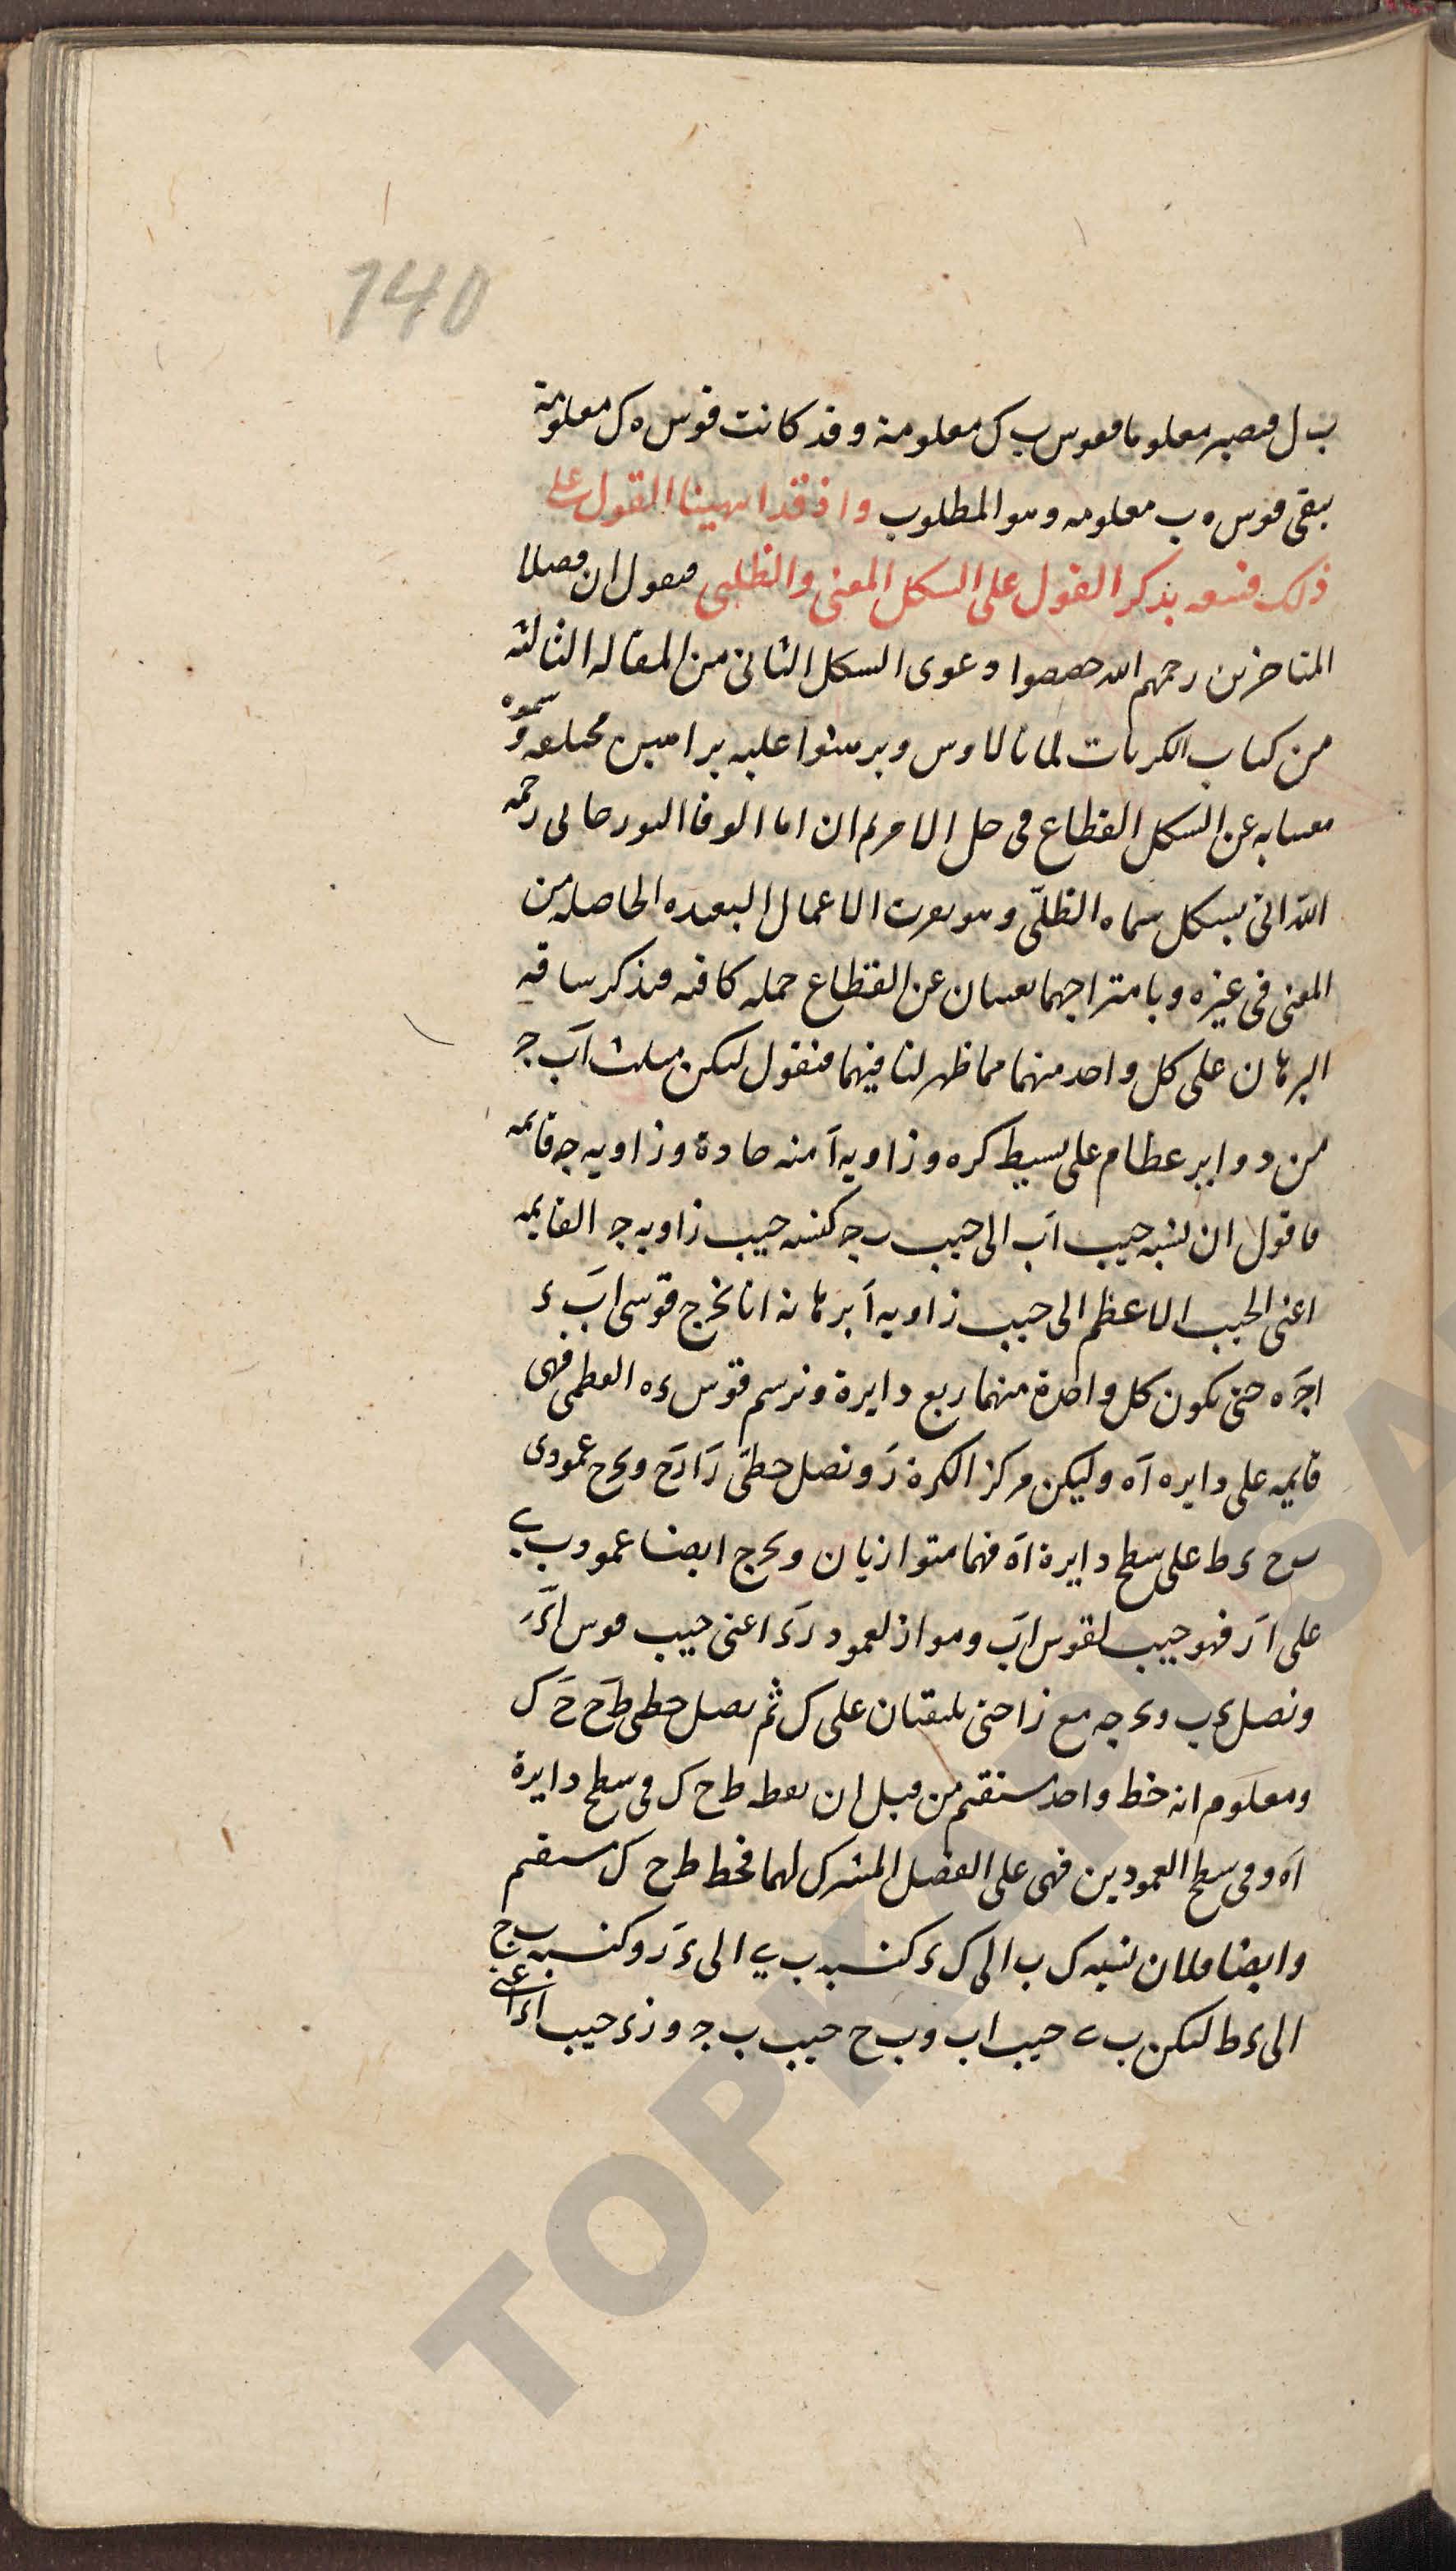 140
ب ل فيصير معلوما فقوس ب ك معلومة وقد كانت قوس ه ك معلومة
يبقى قوس ه ب معلومه وهو المطلوب واذ قد انتهينا القول على
ذلك فنتبعه بذكر القول على الشكل المغنى والظلى فنقول ان فضلا
المتاخرين رحمهم الله خصصوا دعوى الشكل الثانى من المقاله الثالثه
من كتاب الكريات لمانالاوس وبرهنوا عليه براهين مختلفه وسموه
مغنيا به عن الشكل القطاع فى حل الامر ثم ان ابا الوفا البوزجانى رحمه
الله اتى بشكل سماه الظلّى وهو يقرب الاعمال البعيده الحاصله من
المغنى فى غيره وبامتزاجهما يغنيان عن القطاع جمله كافيه فنذكر سياقة
البرهان على كل واحد منهما مما ظهر لنا فيهما فنقول ليكن مثلث اب ج
من دواير عظام على بسيط كره وزاويه ا منه حادة وزاويه جـ قايمه
فاقول ان نسبه جيب اب الى جيب ب جـ كنسبه جيب زاويه جـ القايمه
اعنى الجيب الاعظم الى جيب زاويه ا برهانه انا نخرج قوسى اب ء
اجـ ه حتى تكون كل واحدة منهما ربع دايرة ونرسم قوس ء ه العظمى فهى
قايمه على دايره اه وليكن مركز الكرة ز ونصل خطى ز ا ز ح ونخرج عمودى
ب ح ء ط على سطح دايرة اه فهما متوازيان ونخرج ايضا عمود ب ى
على ا ز فهو جيب لقوس اب ومواز لعمود ز ء اعنى جيب قوس ا ء
ونصل ء ب ونخرجه مع ز ا حتى يلتقيان على ك ثم نصل خطى ط ح ح ك
ومعلوم انه خط واحد مستقيم من قبل ان نقطه ط ح ك فى سطح دايرة
اه وفى سطح العمودين فهى على الفصل المشترك لهما فخط ط ح ك مستقيم
وايضا فلان نسبه ك ب الى ك ء كنسبه ب ى الى ء ز وكنسبه ب ح
الى ء ط لكن ب ى جيب اب وب ح جيب ب جـ وز ء جيب ا ء اعنى
TOPKAPI SA